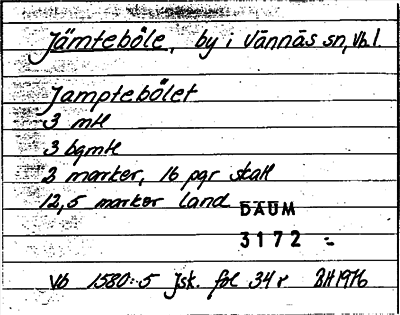 Jämteböle, by i Vännäs sn, Vb.l.
Jamptebölet
3 mtl
3 bgmtl
2 marker, 16 pgr skatt
12,5 marker land
DAUM
3172
Vb 1580:5 Jsk. fol 34r BH 1976